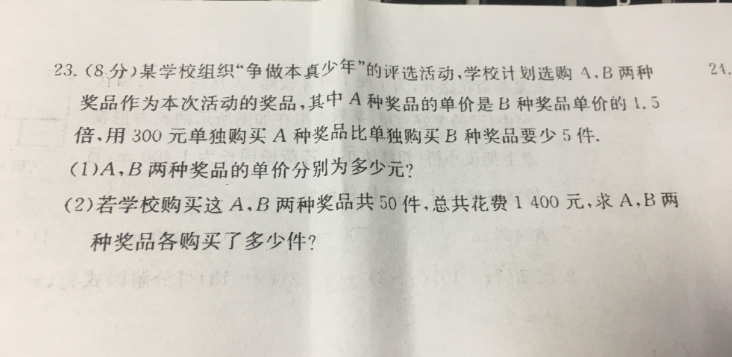 23.(8分)某学校组织“争做本真少年”的评选活动,学校计划选购 A,B 两种
奖品作为本次活动的奖品,其中 A 种奖品的单价是 B 种奖品单价的 1.5
倍,用 300 元单独购买 A 种奖品比单独购买 B 种奖品要少 5 件.
(1)A,B 两种奖品的单价分别为多少元?
(2)若学校购买这 A,B 两种奖品共 50 件,总共花费 1 400 元,求 A,B 两
种奖品各购买了多少件?
24.